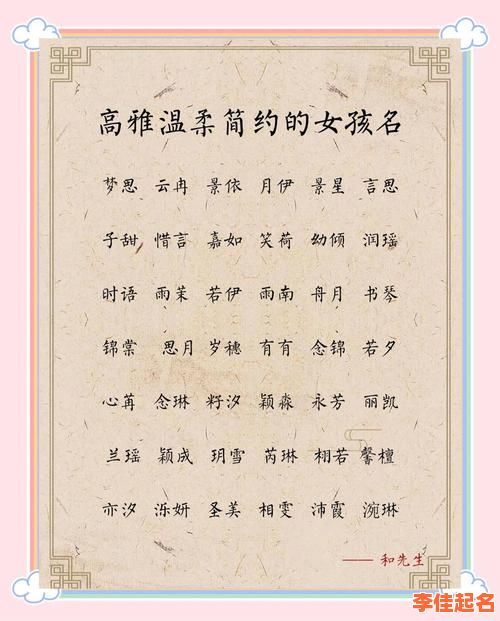 高雅温柔简约的女孩名
梦思 云冉 景依 月伊 景星 言思
子甜 惜言 嘉如 笑荷 幼倾 润瑶
时语 雨茉 若伊 雨南 舟月 书琴
锦棠 思月 岁穗 有有 念锦 若夕
心苒 念琳 籽汐 颖淼 永芳 丽凯
兰瑶 颖成 玥雪 芮琳 栩若 馨檀
亦汐 泺妍 圣美 相雯 沛霞 涴琳
—— 和先生
李佳起名